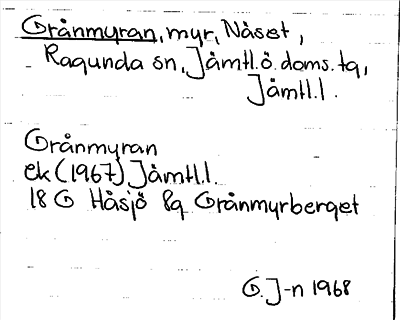 Grånmyran, myr, Näset,
Ragunda sn, Jämtl.ö.doms.tg,
Jämtl.l.
Grånmyran
ek (1967) Jämtl.l.
18 G Håsjö &q Grånmyrberget
G. J-n 1968